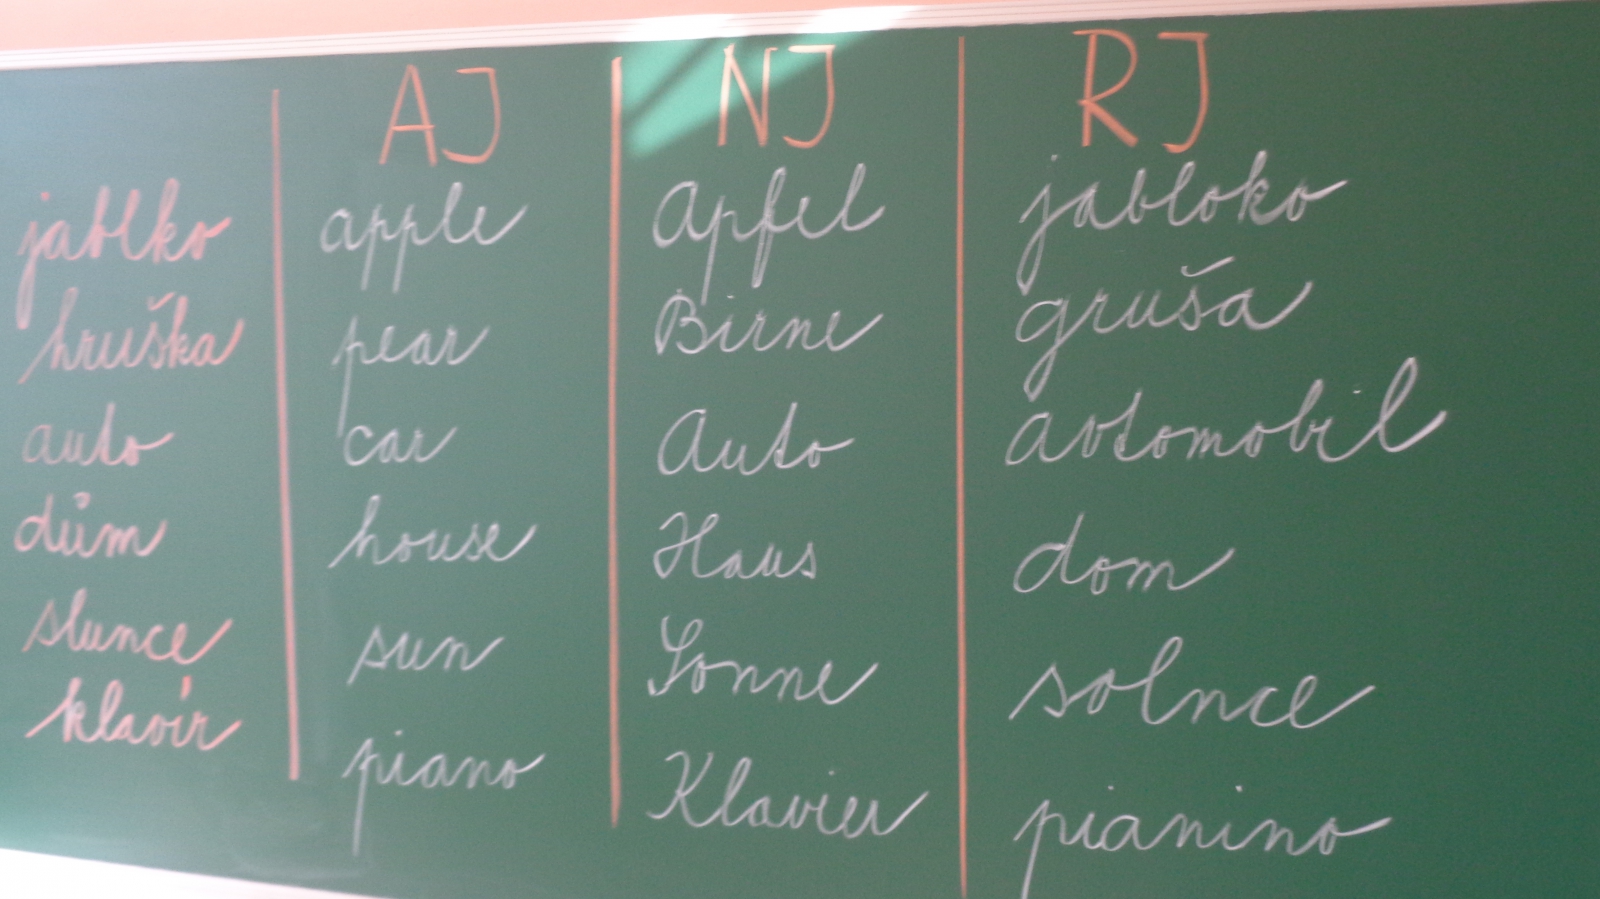 AJ NJ RJ
jablko apple Apfel jabloko
hruška pear Birne gruša
auto car Auto avtomobil
dům house Haus dom
slunce sun Sonne solnce
klavír piano Klavier pianino